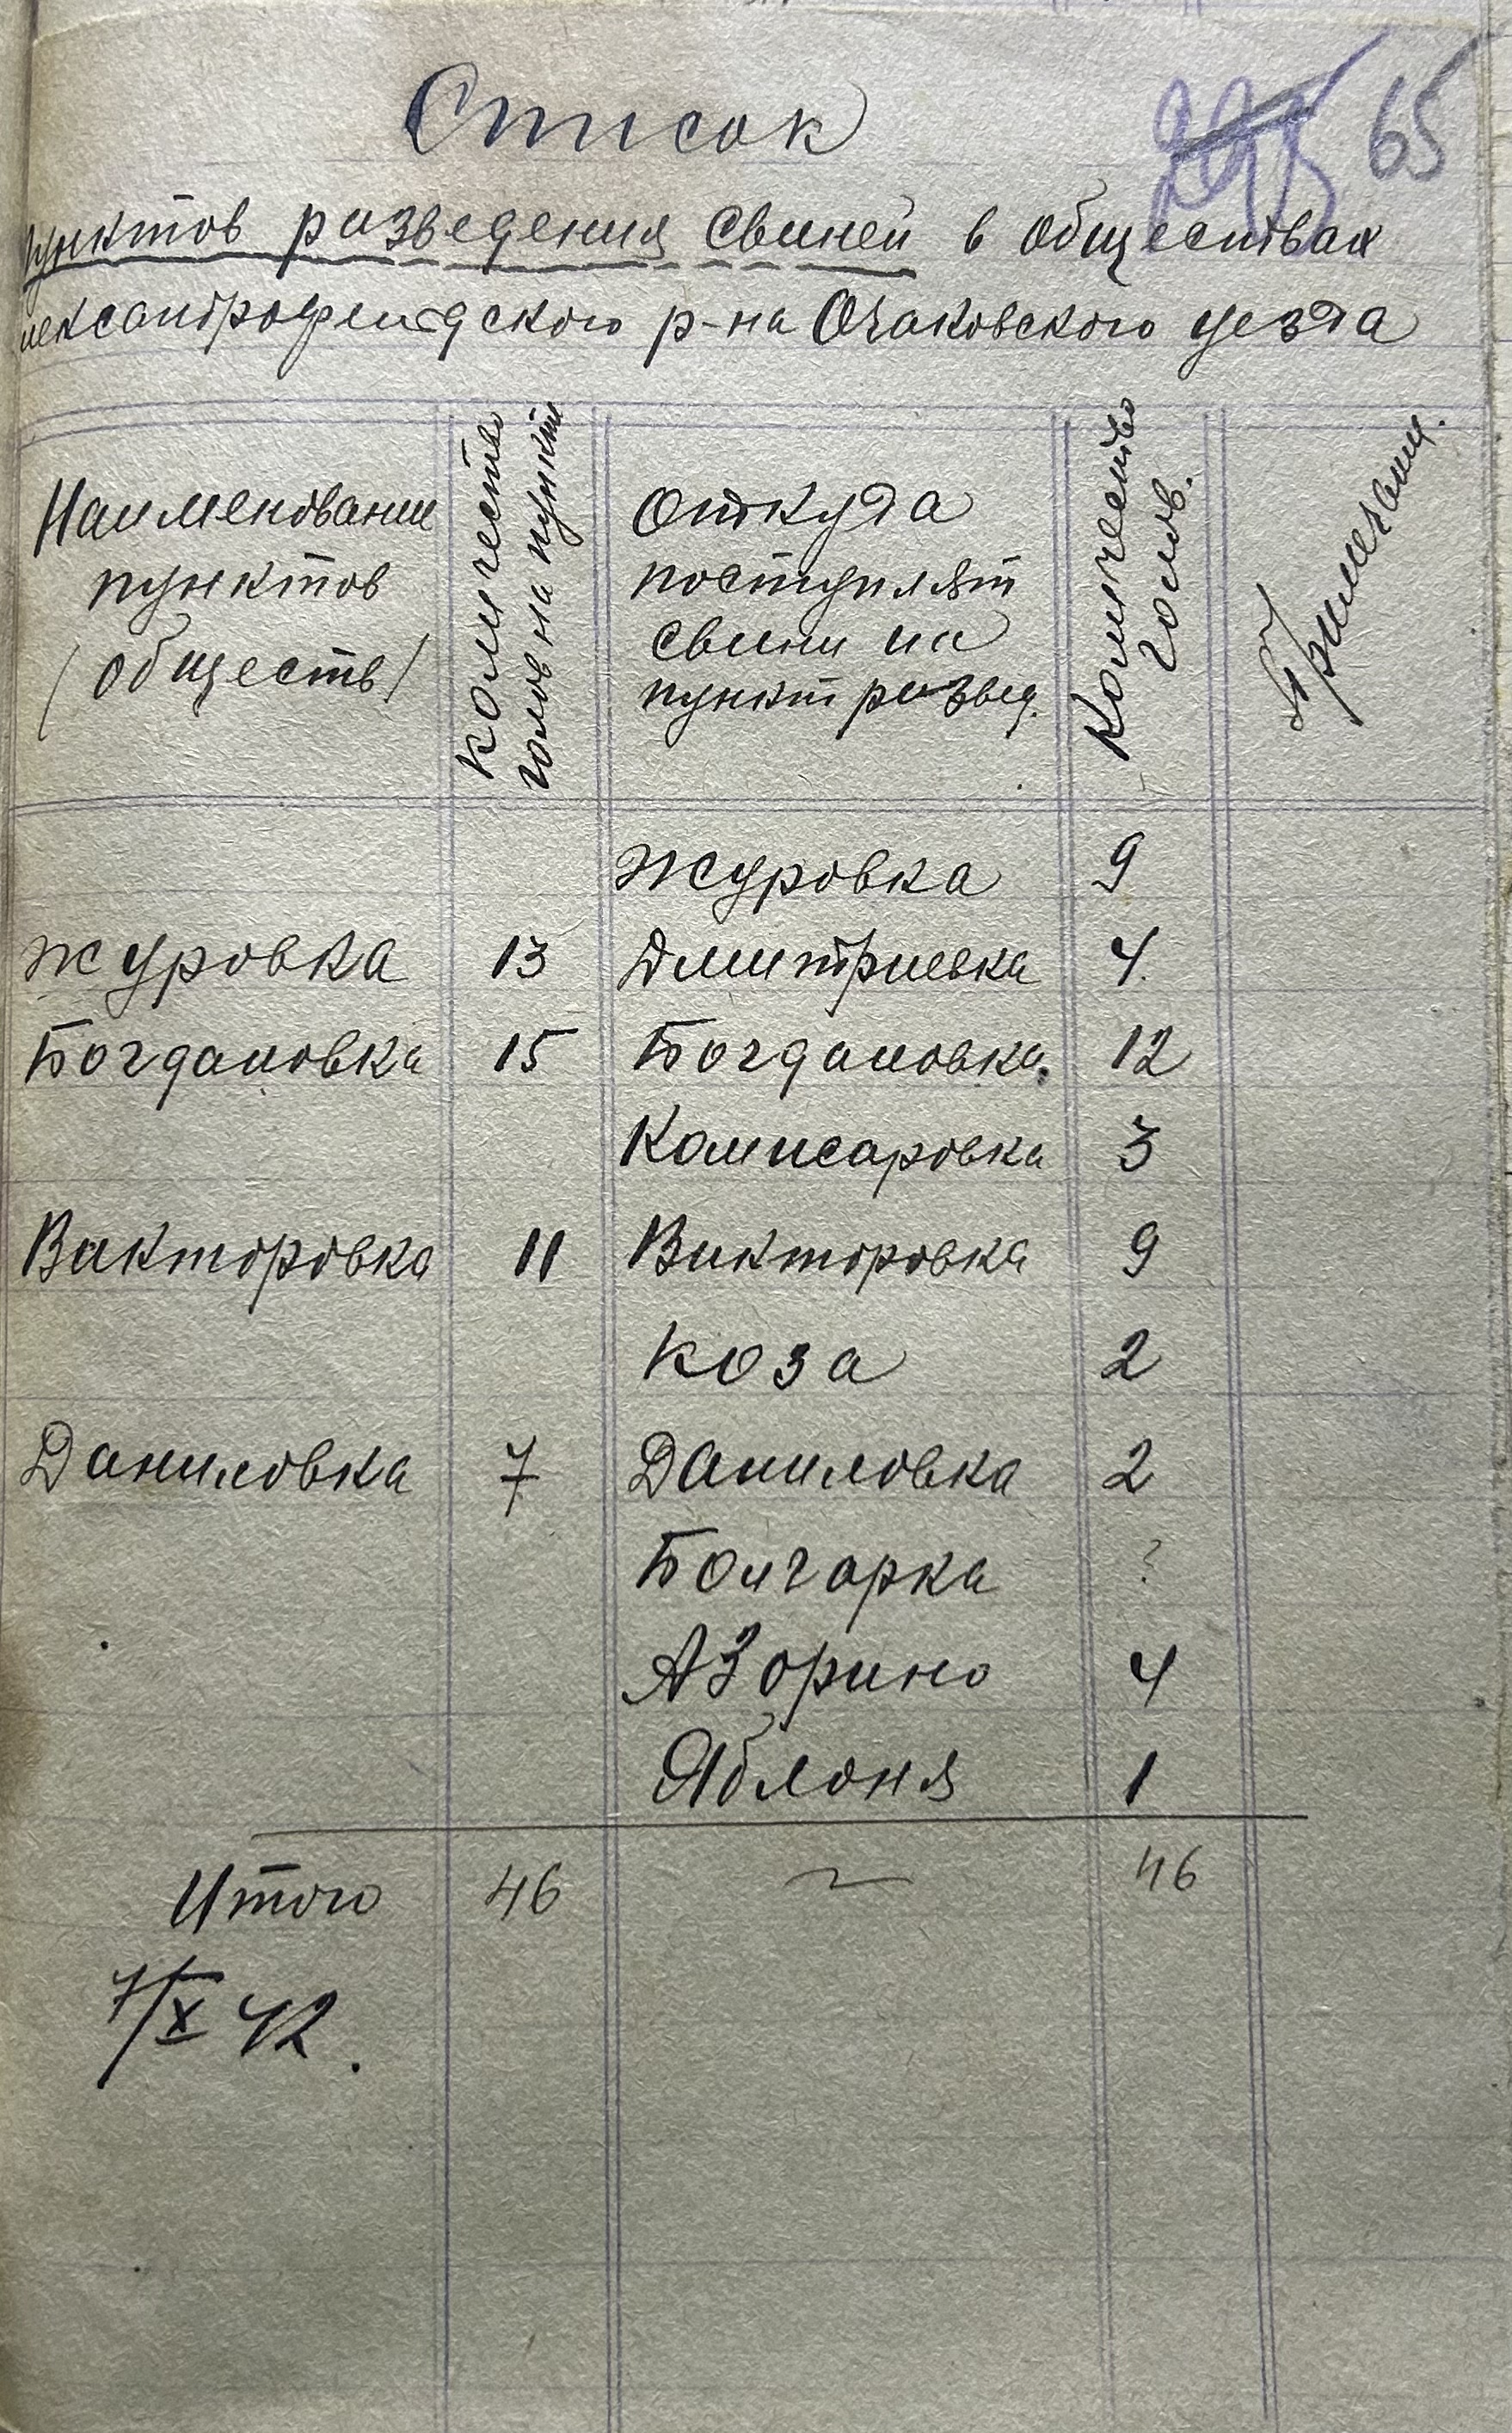 Список
295 65
пунктов разведения свиней в обществах
лександрофельдского р-на Очаковского уезда
Наименование пунктов (обществ) Количество голов на пункт Откуда поступлят свини на пункт развед. Количество голов. Примечание.
Журовка 9
Журовка 13 Дмитриевка 4.
Богдановка 15 Богдановка. 12
Комисаровка 3
Викторовка 11 Викторовка 9
Коза 2
Даниловка 7 Даниловка 2
Болгарка ?
АЗорино 4
Яблоня 1
Итого 46 ~ 46
7/X 42.